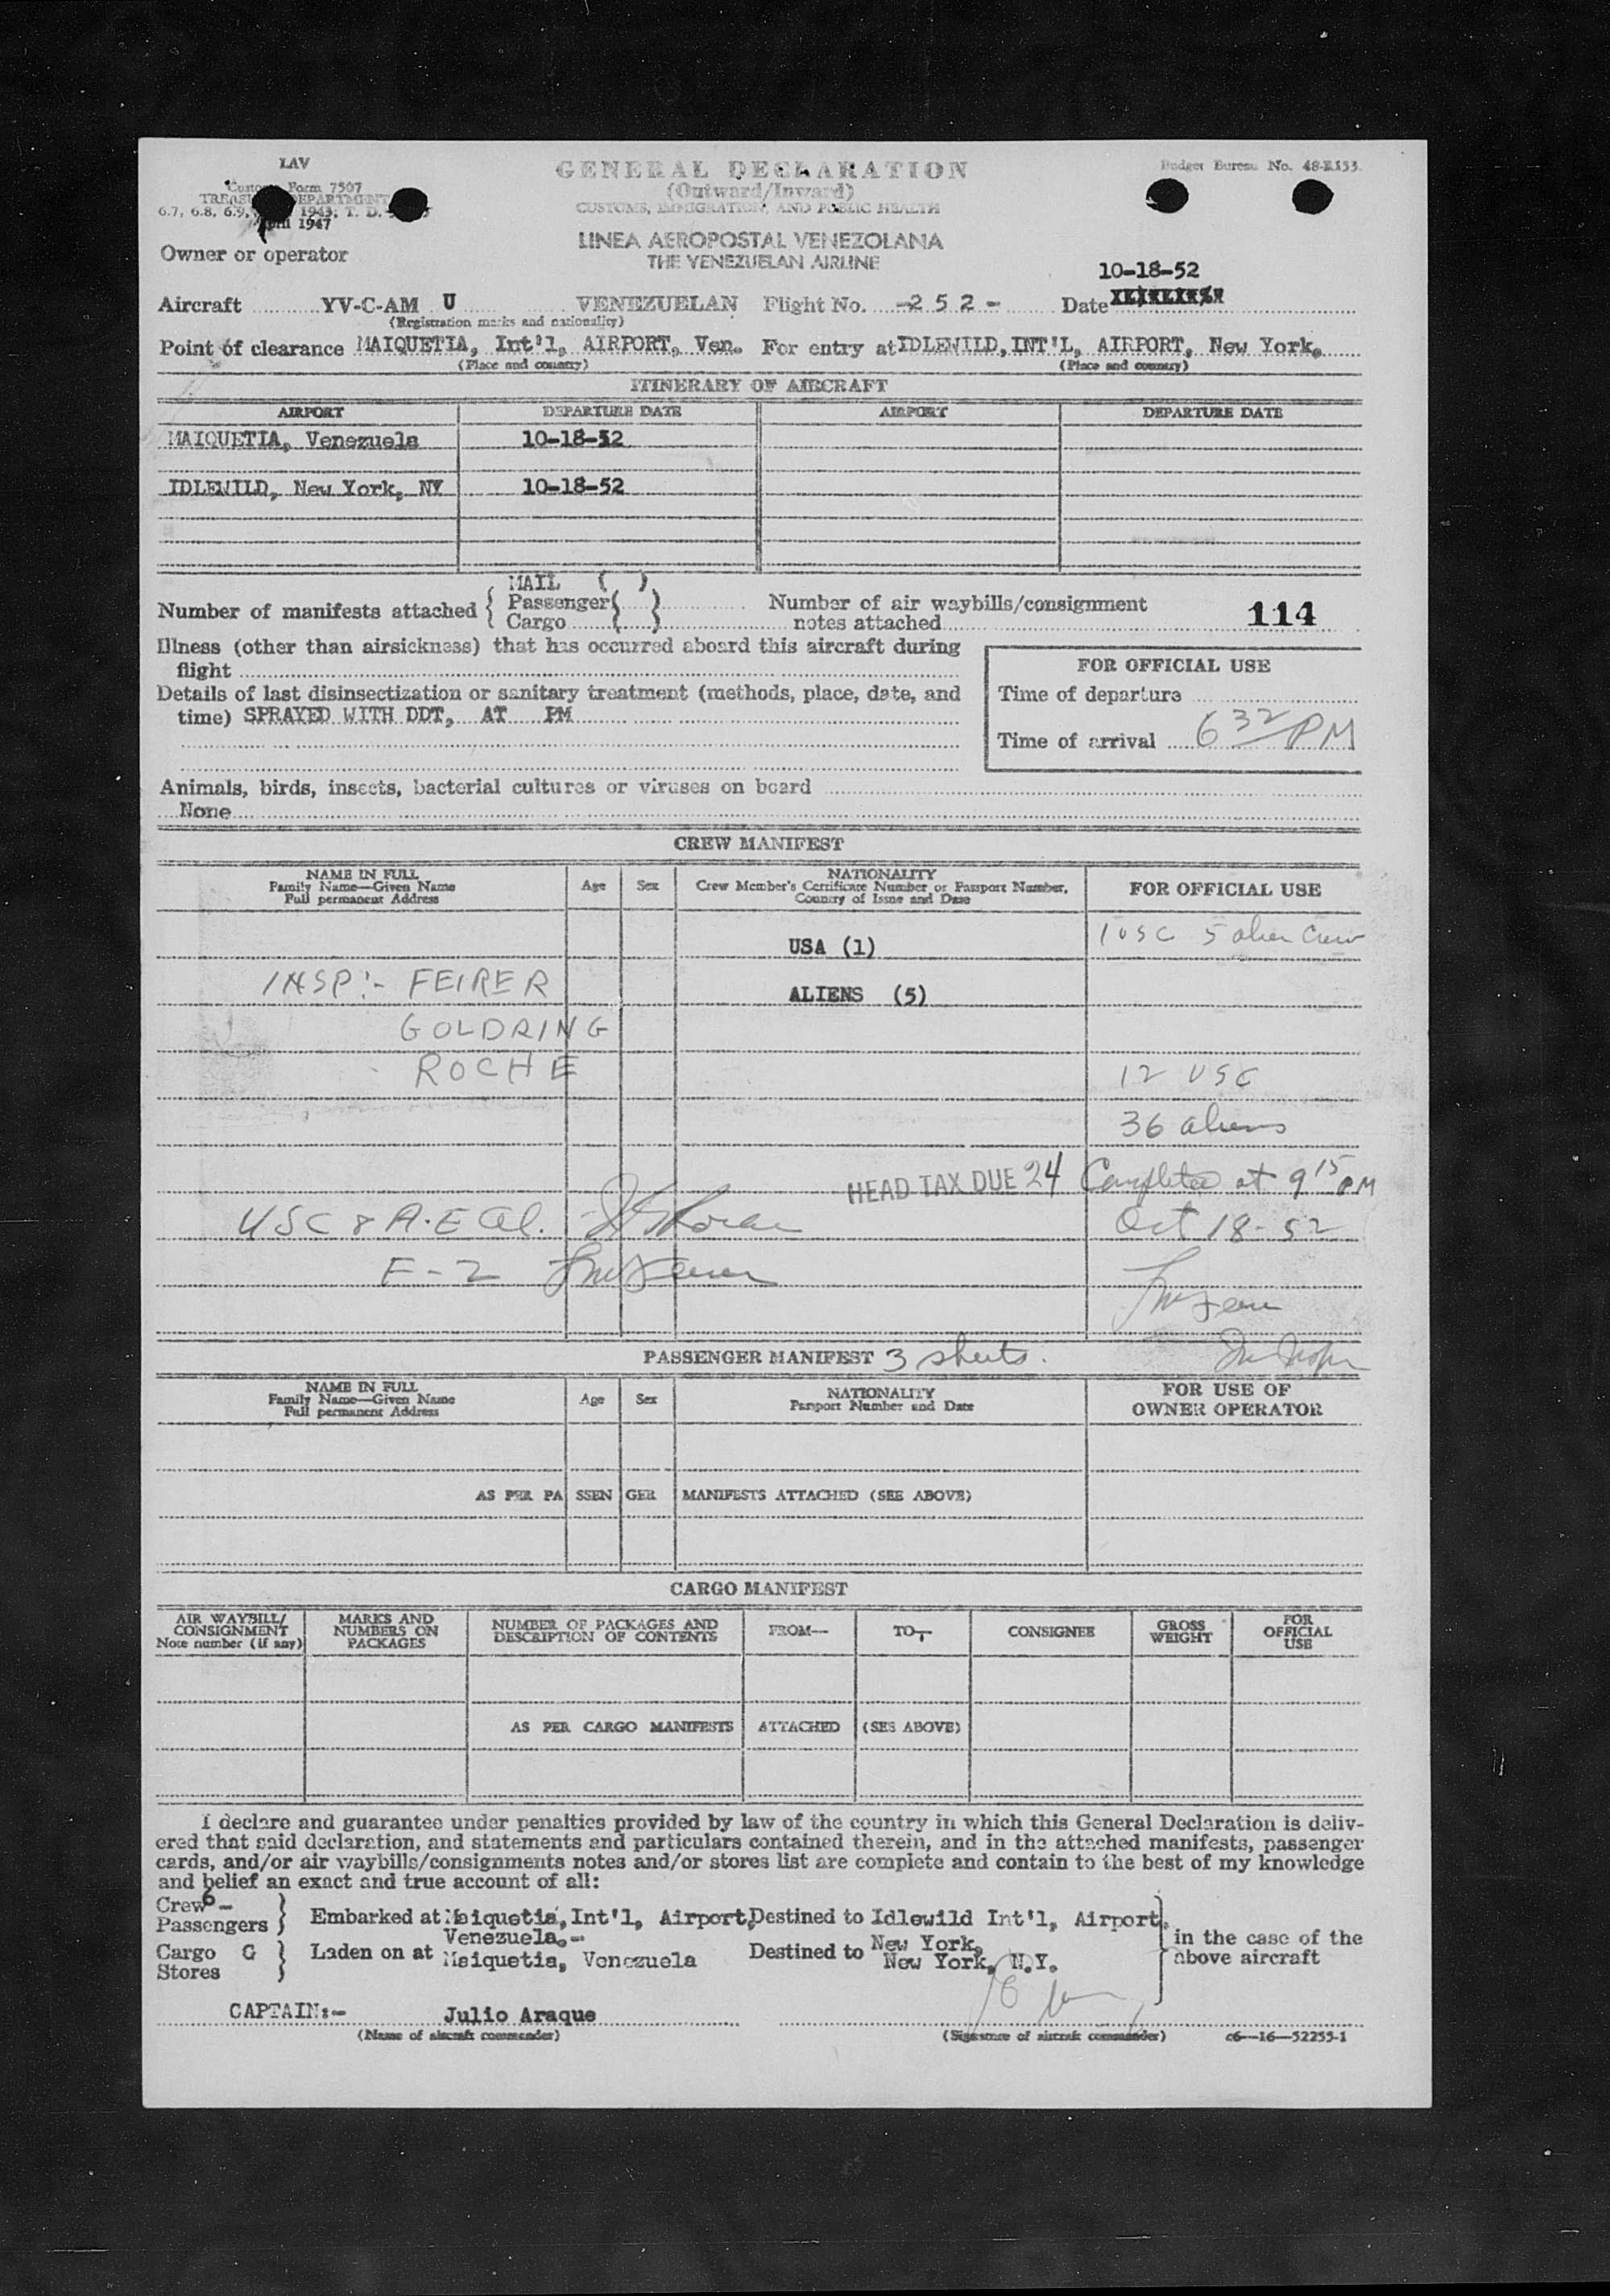 LAV
GENERAL DECLARATION
Budget Bureau No. 48-R153.
Customs Form 7507
(Outward/Inward)
TREASURY DEPARTMENT
CUSTOMS, IMMIGRATION, AND PUBLIC HEALTH
6.7, 6.8, 6.9, 1943; T. D.
April 1947
LINEA AEROPOSTAL VENEZOLANA
THE VENEZUELAN AIRLINE
Owner or operator
10-18-52
Aircraft YV-C-AM U VENEZUELAN Flight No. -252- Date
(Registration marks and nationality)
Point of clearance MAIQUETIA, Int'l, AIRPORT, Ven. For entry at IDLEWILD, INT'L, AIRPORT, New York,
(Place and country) (Place and country)
ITINERARY OF AIRCRAFT
AIRPORT DEPARTURE DATE AIRPORT DEPARTURE DATE
MAIQUETIA, Venezuela 10-18-52
IDLEWILD, New York, NY 10-18-52
MAIL ( )
Number of manifests attached { Passenger ( ) Number of air waybills/consignment
Cargo ( ) notes attached 114
Illness (other than airsickness) that has occurred aboard this aircraft during
flight
FOR OFFICIAL USE
Details of last disinsectization or sanitary treatment (methods, place, date, and
time) SPRAYED WITH DDT, AT PM
Time of departure
Time of arrival 6 32 PM
Animals, birds, insects, bacterial cultures or viruses on board
None
CREW MANIFEST
NAME IN FULL
Family Name—Given Name
Full permanent Address
Age Sex
NATIONALITY
Crew Member's Certificate Number or Passport Number,
Country of Issue and Date
FOR OFFICIAL USE
USA (1) 1 USC 5 alien Crew
INSP:- FEIRER ALIENS (5)
GOLDRING
ROCHE 12 USC
36 aliens
HEAD TAX DUE 24 Completed at 9 15 PM
USC & A-E al. Oct 18-52
F-2
PASSENGER MANIFEST 3 sheets.
NAME IN FULL
Family Name—Given Name
Full permanent Address
Age Sex
NATIONALITY
Passport Number and Date
FOR USE OF
OWNER OPERATOR
AS PER PASSENGER MANIFESTS ATTACHED (SEE ABOVE)
CARGO MANIFEST
AIR WAYBILL/
CONSIGNMENT
Note number (if any)
MARKS AND
NUMBERS ON
PACKAGES
NUMBER OF PACKAGES AND
DESCRIPTION OF CONTENTS
FROM—
TO—
CONSIGNEE
GROSS
WEIGHT
FOR
OFFICIAL
USE
AS PER CARGO MANIFESTS ATTACHED (SEE ABOVE)
I declare and guarantee under penalties provided by law of the country in which this General Declaration is deliv-
ered that said declaration, and statements and particulars contained therein, and in the attached manifests, passenger
cards, and/or air waybills/consignments notes and/or stores list are complete and contain to the best of my knowledge
and belief an exact and true account of all:
Crew 6 -
Passengers } Embarked at Maiquetia, Int'l, Airport, Destined to Idlewild Int'l, Airport,
Venezuela.- New York,
in the case of the
above aircraft
Cargo G } Laden on at Maiquetia, Venezuela Destined to New York, N.Y.
Stores
CAPTAIN:- Julio Araque
(Name of aircraft commander) (Signature of aircraft commander) c6—16—52255-1